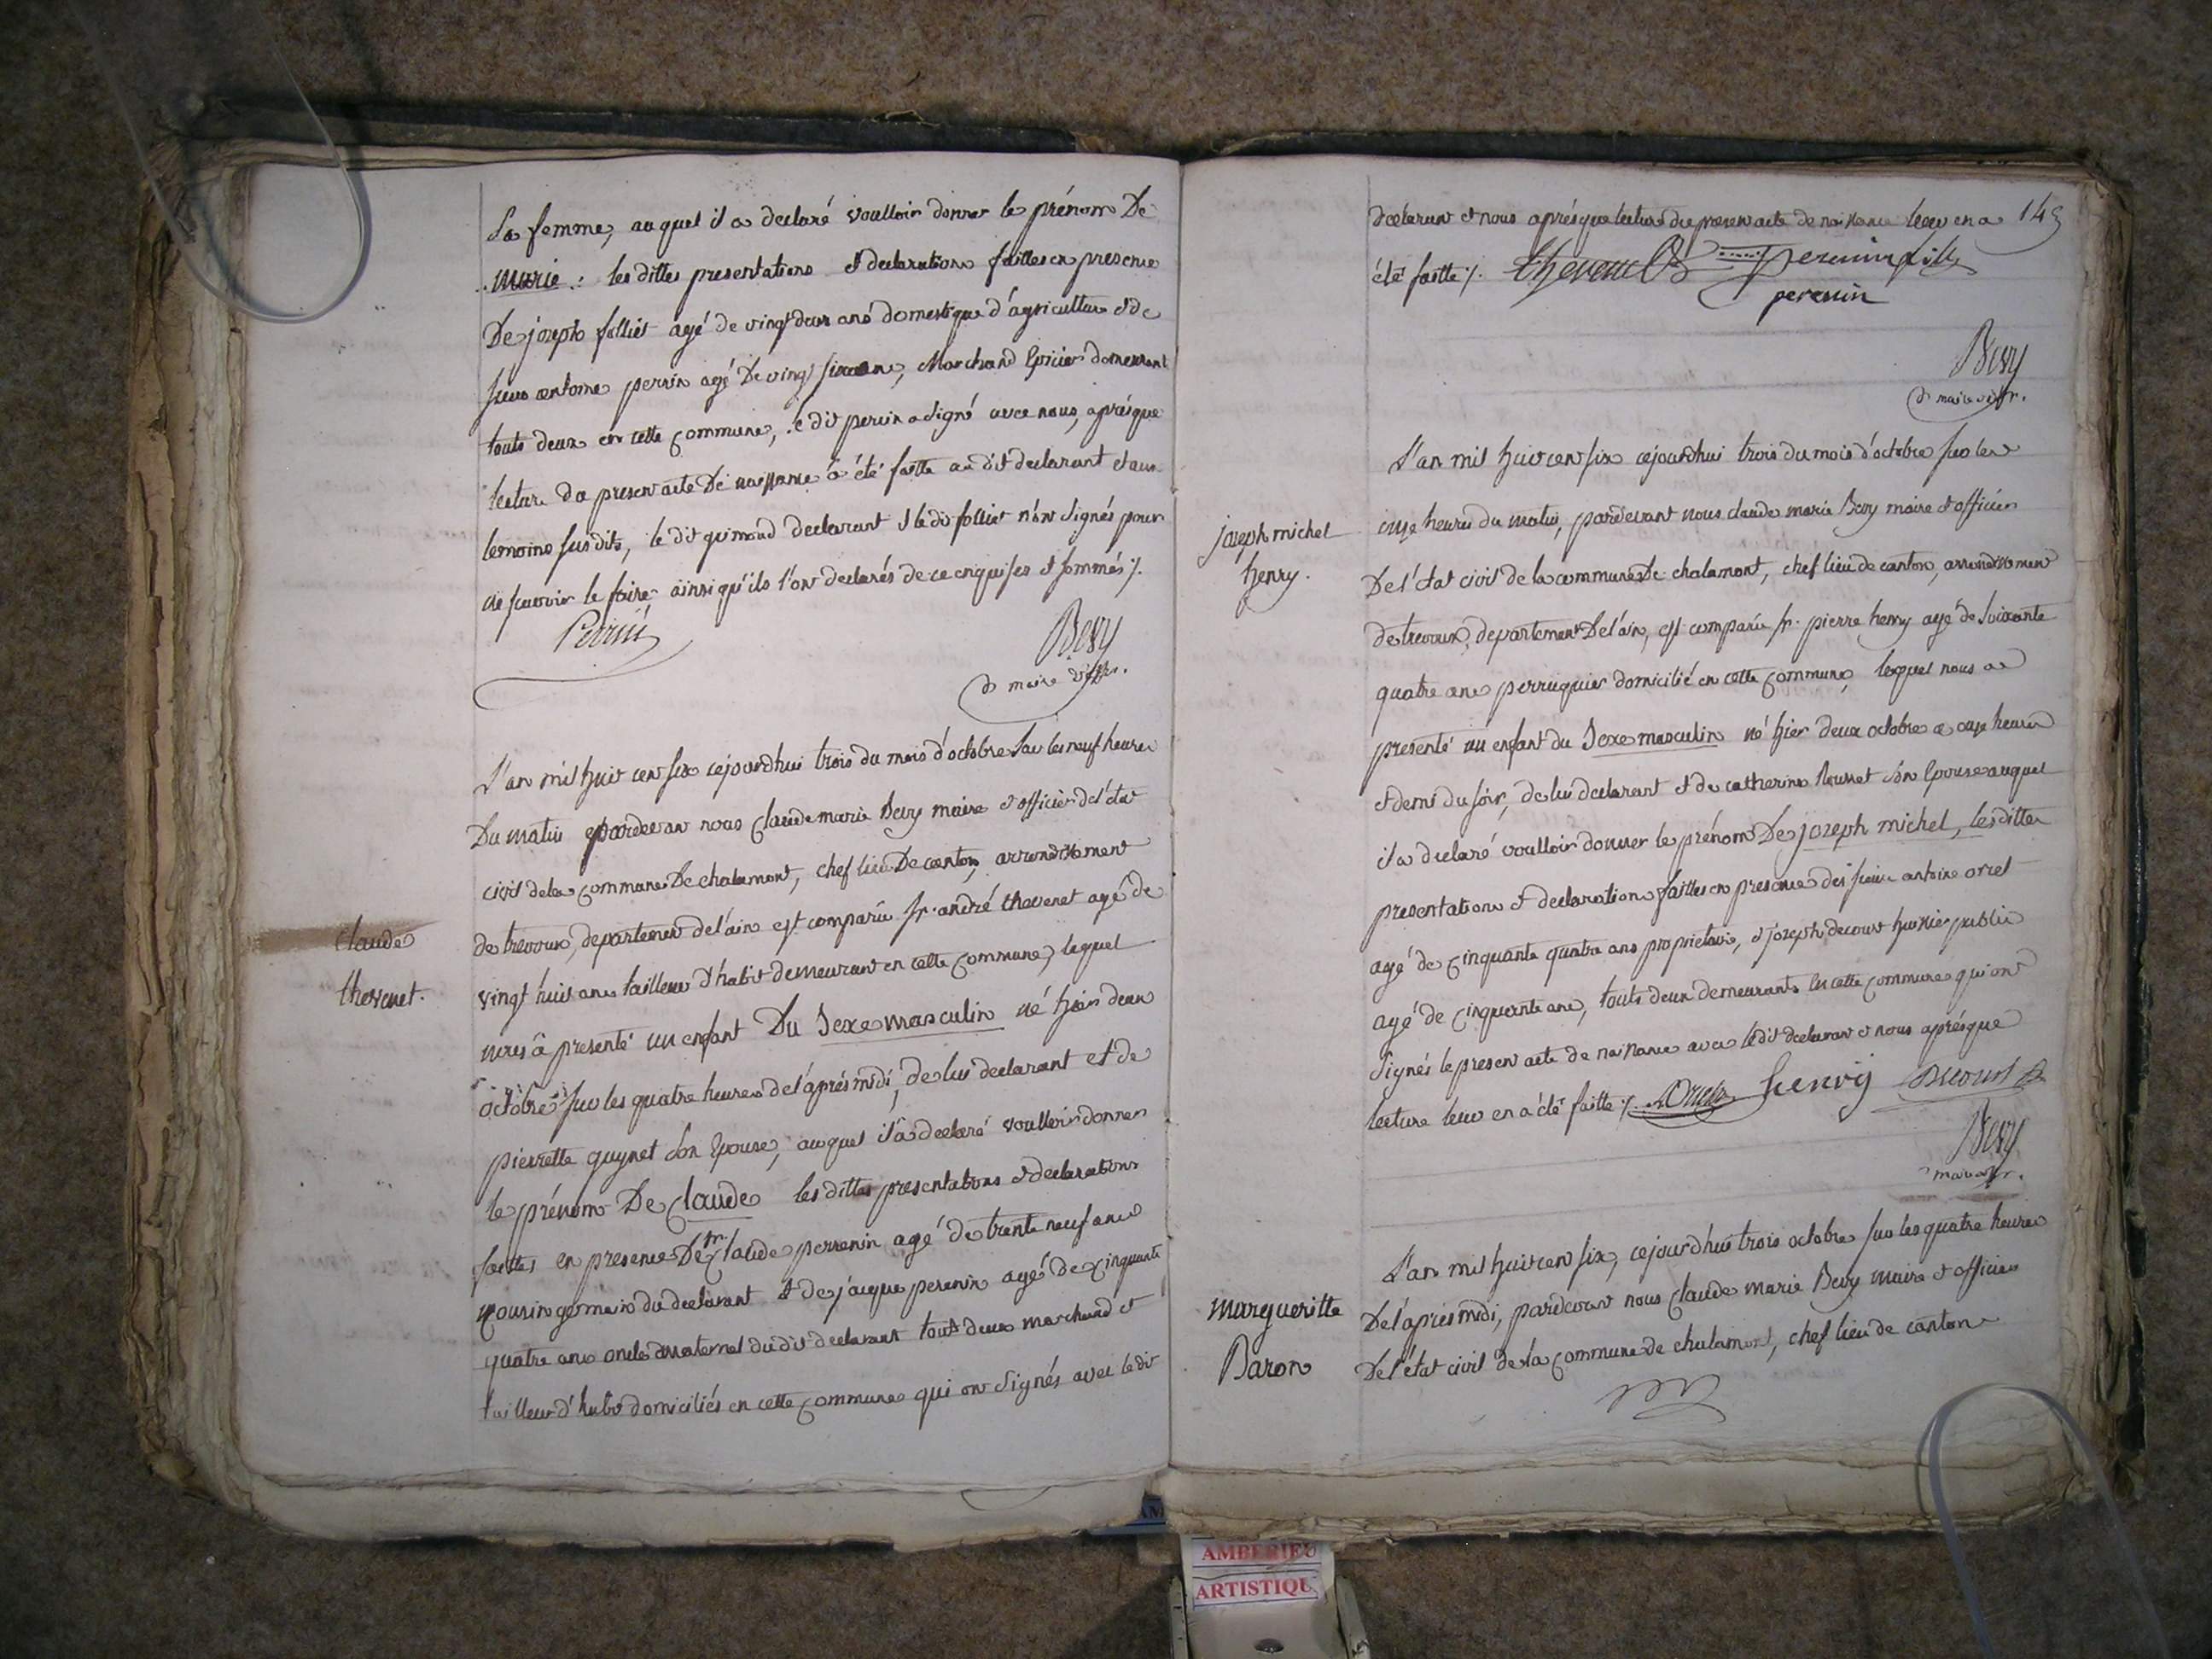 Sa femme, auquel il a declaré voulloir donner le prénom De
Marie: les dittes presentations et declarations faittes en presence
De joseph folliet agé de vingt deux ans domestique d'agriculture et de
sieur antoine perrin agé De vingt six ans, Marchand Epicier demeurant
touts deux en cette Commune, le dit perrin a signé avec nous, aprésque
lecture du present acte De naissance à été faitte au dit declarant et aux
temoins susdits, le dit guimoud declarant et le dit folliet n'ont signés pour
ne scavoir le faire, ainsi qu'ils l'ont declarés de ce enquises et sommés ∕.
Perrin
Bevy
maire off.er
claude
thevenet.
L'an mil huit cent six cejourdhui trois du mois d'octobre sur les neuf heures
Du matin pardevant nous Claude marie Bevy maire et officier de l'état
civil de la Commune De chalamont, chef lieu De canton, arrondissement
de trevoux, departement de l'ain est comparu sr. andré thevenet agé de
vingt huit ans tailleur d'habit demeurant en cette Commune, lequel
nous à presenté un enfant Du Sexe masculin né hier deux
octobre sur les quatre heures de l'aprésmidi, de lui declarant et de
pierrette guynet son Epouse, auquel il à declaré voulloir donner
le prénom De Claude les dittes presentations et declarations
faittes en presence De sr. Claude perrenin agé de trente neuf ans
Cousin germain du declarant et de jacque perenin agé de Cinquante
quatre ans oncle maternel du dit declarant tout deux marchand et
tailleur d'habit domiciliés en cette Commune qui ont signés avec le dit
declarant et nous aprésque lecture du present acte de naissance leur en a
été faitte ∕. thevenet perenin fils
perenin
Bevy
maire off.r.
joseph michel
henry.
L'an mil huit cent six cejourdhui trois du mois d'octobre sur les
onze heures du matin, pardevant nous claude marie Bevy maire et officier
De l'état civil de la commune De chalamont, chef lieu de canton, arrondissement
de trevoux, departement De l'ain, est comparu sr. pierre henry agé de soixante
quatre ans perruquier domicilié en cette Commune, lequel nous a
presenté un enfant du Sexe masculin né hier deux octobre a onze heures
et demi du soir, de lui declarant et de catherine Rousset son Epouse auquel
il a declaré voulloir donner le prénom De joseph michel, les dittes
presentations et declarations faittes en presence des sieur antoine orsel
agé de Cinquante quatre ans proprietaire, et joseph decourt huissier public
agé de Cinquante ans, touts deux demeurants en cette commune qui ont
signés le present acte de naissance avec le dit declarant et nous aprésque
lecture leur en a été faitte ∕. Orsel henry Decourt
Bevy
maire off.r.
margueritte
Baron
L'an mil huit cent six, cejourdhui trois octobre sur les quatre heures
De l'apresmidi, pardevant nous Claude marie Bevy maire et officier
De l'état civil de la Commune de chalamont, chef lieu de canton
AMBERIEU
ARTISTIQU